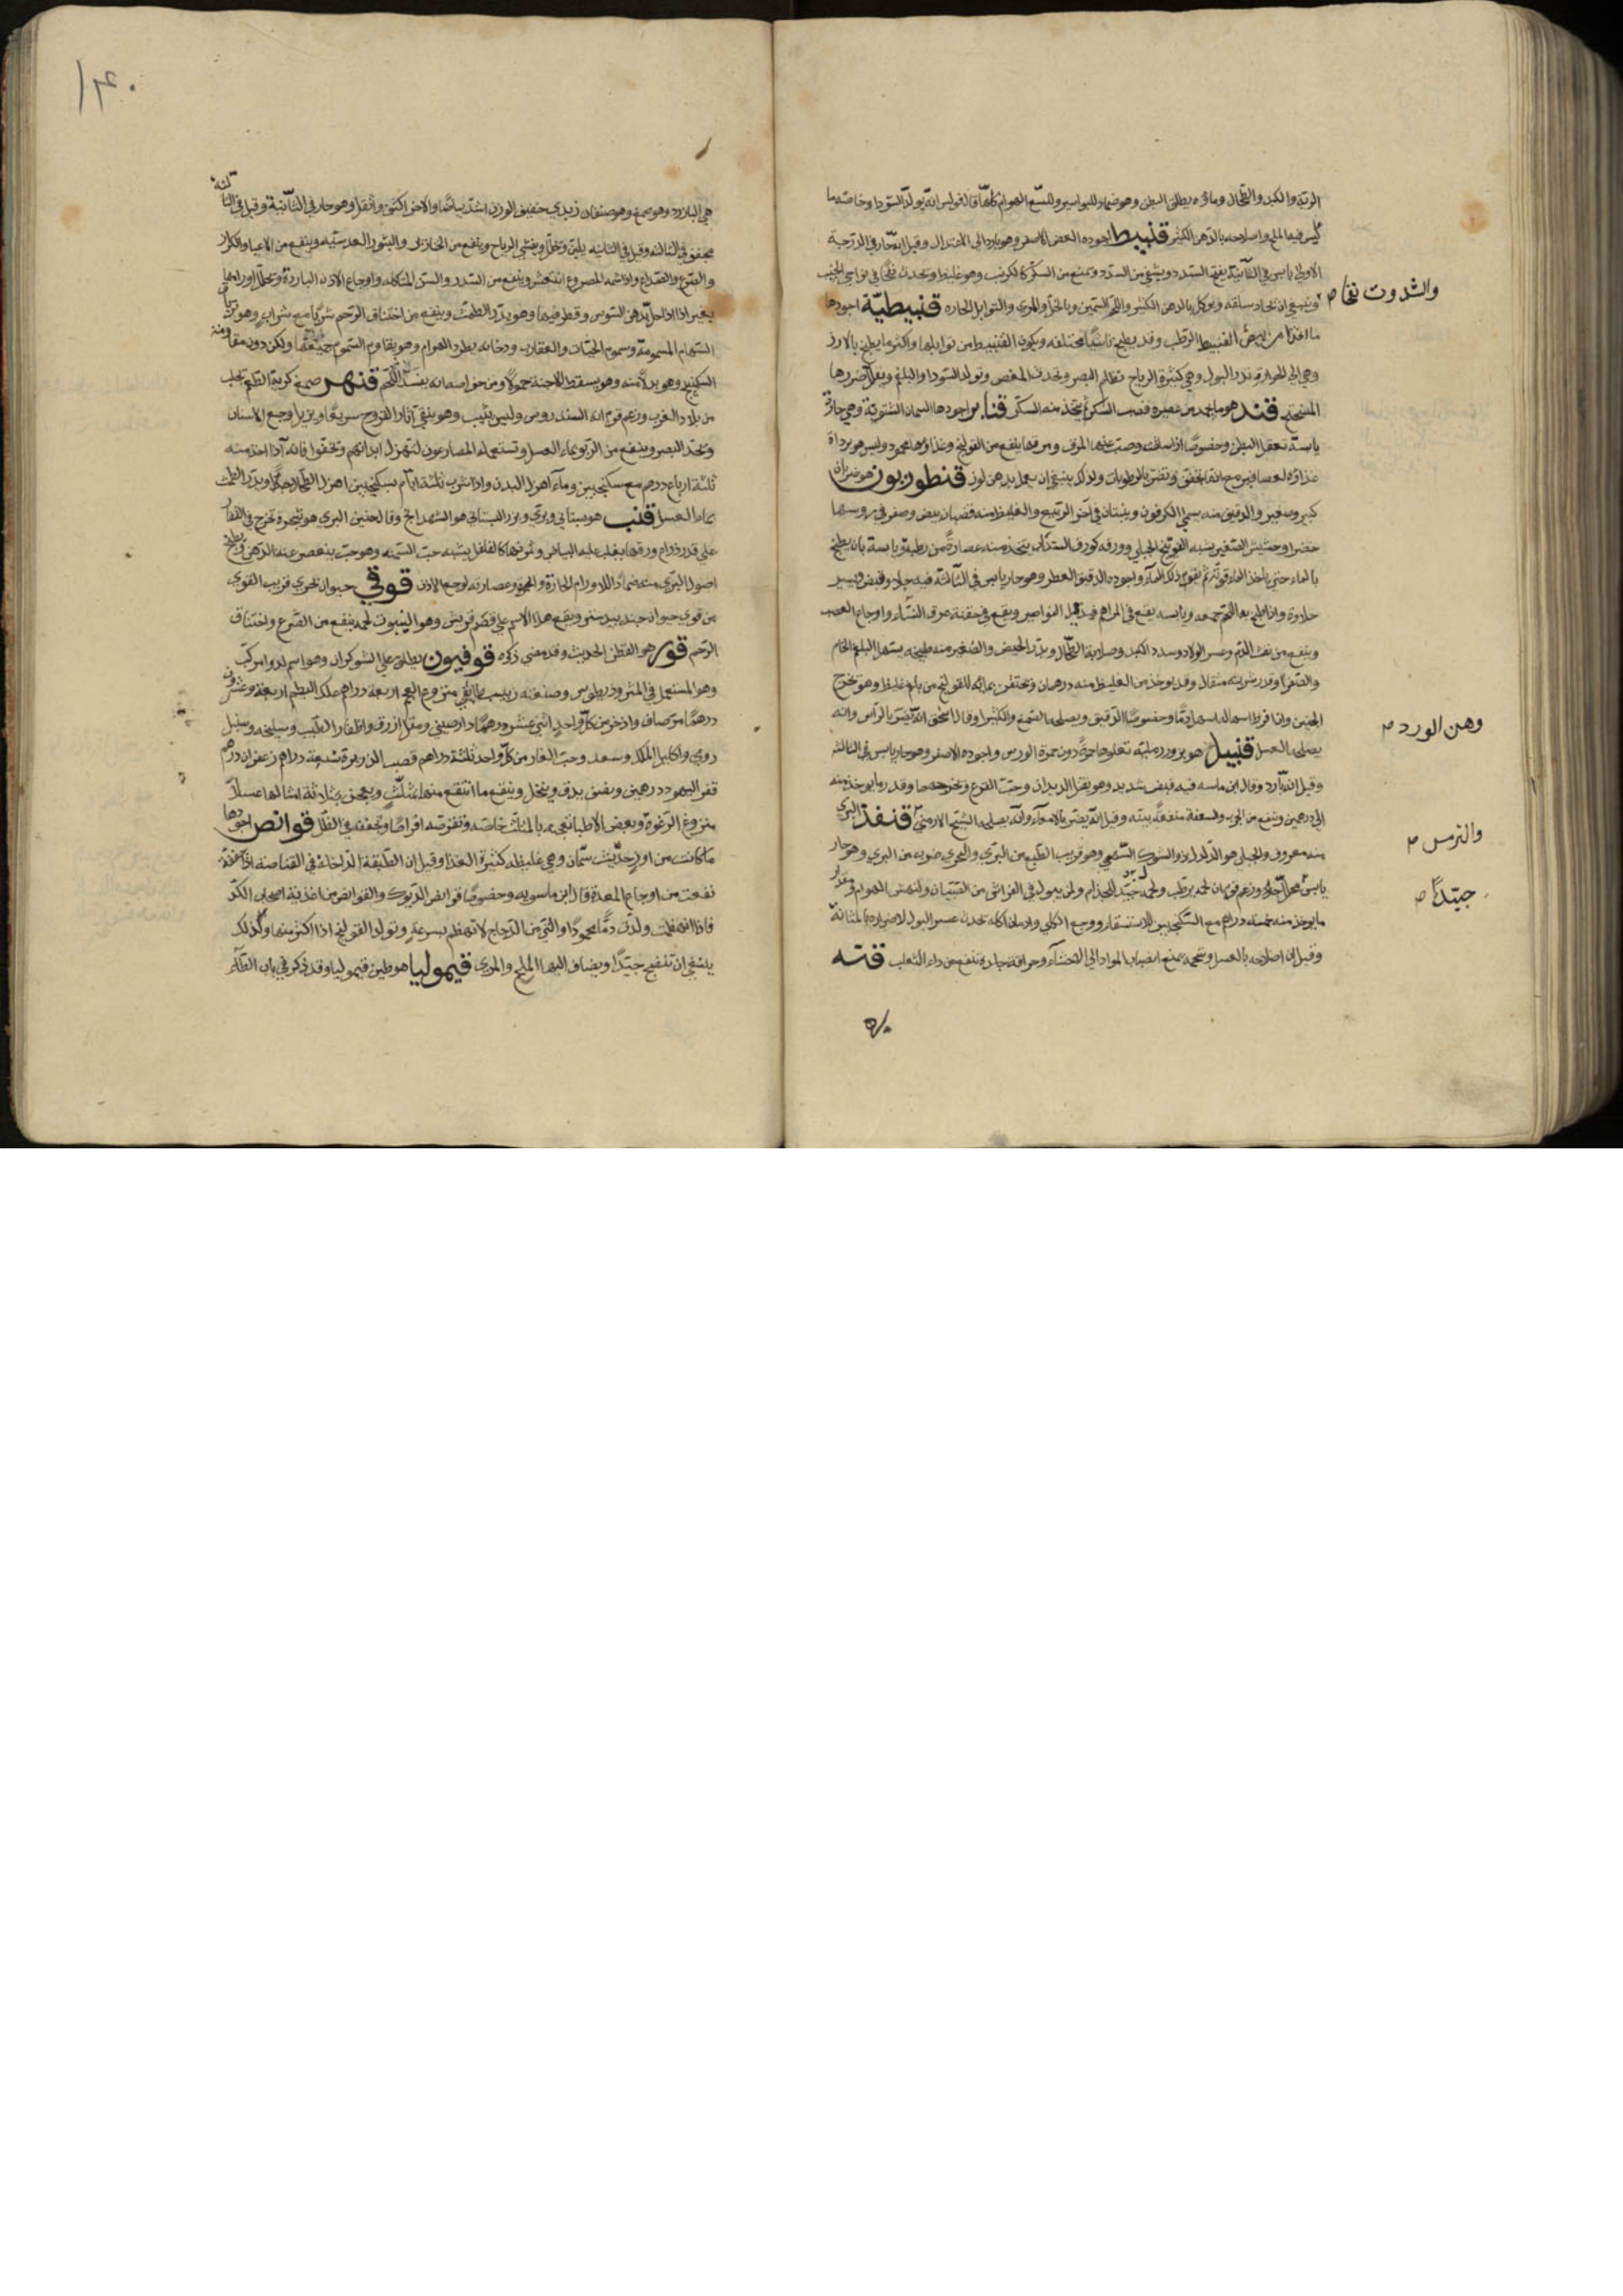 الرية والكبد والطحال وماؤه يطلق البطن وهو ضماد للبواسير وللسع الهوام كلها قال فولس انه يولد السودا وخاصته ما
كبس فيه الملح واصلاحه بالدهن الكثير قنبيط اجوده الغض الاصفر وهو بارد الى الاعتدال وقيل انه حار في الدرجة
الاولى يابس في الثانية يفتح السدد ويشفي من السدد ويمنع من السكر كالكرنب وهو غليظ ويحدث نفخا في نواحي الجنب
وينبغي ان يجاد سلقه ويوكل بالدهن الكثير واللحم السمين وبالخل والمري والتوابل الحاره قنبيطية اجودها
ما اتخذ من بيض القنبيط الرطب وقد يطبخ مختلفه ويكون القنبيط من توابلها واكثر ما يطبخ بالارز
وهي الى الحرارة تدر البول وهي كثيرة الرياح تظلم البصر وتحدث المغص وتولد السودا والبلغم ويقل ضررها
قند هو ما يجمد من عصير قصب السكر ثم يتخذ منه السكر قنابر اجودها السمان الشتوية وهي حارة
يابسة تعقل البطن وخصوصا اذا سلقت وصب عنها المرق ومرقها ينفع من القولنج وغذاؤها محمود وليس هو برداءة
غذاء العصافير مع انه يجفف ويضر بالرطوبات ولذلك ينبغي ان يعمل بدهن لوز قنطوريون هو ضربان
كبير وصغير والدقيق منه يسمى الكرفون وينبتان في آخر الربيع والغليظ منه قضبان بيض وصفر في روسها
خضرا وحشيش الصغير يشبه الفوتنج الجبلي وورقه كورق السذاب يتخذ منه عصارة من رطبه ويابسة بان يطبخ
بالماء حتى ياخذ الماء قوته ثم يقوم ذلك الماء واجوده الدقيق العطر وهو حار يابس في الثالثة فيه جلاء وقبض ويسير
حلاوة واذا طبخ مع اللحم جمعه ويابسه يقع في المراهم فيدمل النواصير ويقع في حقنة عرق النساء واوجاع العصب
وينفع من نفث الدم وعسر الولاد وسدد الكبد وصلابة الطحال ويدر الحيض والصغير منه طبيخه يسهل البلغم الخام
والصفرا وقدر شربته مثقال وقد يوخذ من الغليظ منه درهمان ويحتقن بمائه للقولنج من بلغم غليظ وهو يخرج
الجنين واذا افرط اسهاله اسهل دما وخصوصا الدقيق ويصلحه الصمغ والكثيرا وقال اسحق انه يضر بالراس وانه
يصلحه العسل قنبيل هو بزور رملية تعلوها حمرة دون حمرة الورس واجوده الاصفر وهو حار يابس في الثالثه
وقيل انه بارد وقال ابن ماسه فيه قبض شديد وهو يقتل الديدان وحب القرع ويخرجهما وقدر ما يوخذ منه
الى درهمين وينفع من الجرب والسعفة منفعة بينه وقيل انه يضر بالامعاء وانه يصلحه الشيح الارمني قنفذ البري
منه معروف والجبلي هو الدلدل ذو الشوك السهمي وهو قريب الطبع من البري والبحري ضرب من البري وهو حار
يابس محلل وزعم قوم ان لحمه يرطب ولحمه جيد للجذام ولمن يبول في الفراش من الصبيان ولنهش الهوام ومقدار
ما يوخذ منه خمسة دراهم مع السكنجبين للاستسقاء ووجع الكلى وادمان اكله يحدث عسر البول لاضراره بالمثانة
وقيل ان اصلاحه بالعسل وشحمه يمنع انصباب المواد الى الاحشاء وحراقة جلده ينفع من داء الثعلب قنه
والشدوت نفخا م
وهن الورد م
والترس م
جيدا م
١٤٠
هي البارزد وهو صمغ وهو صنفان زبدي خفيف الوزن اشد بياضا والاخر اكثف واثقل وهو حار في الثانية وقيل في الثالثه
مجفف في الثالثه وقيل في الثانيه يلين ويحلل ويفش الرياح وينفع من الخنازير والبثور العدسيه وينفع من الاعيا والكزاز
والصرع والصداع واذا شمه المصروع انتعش وينفع من السدر والسن المتاكله واوجاع الاذن الباردة ويحلل اورامها
بدهن السوس وقطر فيها وهو يدر الطمث وينفع من اختناق الرحم شربا مع شراب وهو ترياق
السهام المسمومة وسموم الحيات والعقارب ودخانه يطرد الهوام وهو يقاوم السموم جميعها ولكن دون مقاومة
السكبينج وهو بدل منه وهو يسقط الاجنة حمولا ومن خواصه انه يفسد اللحم قنهر صمغ كريه الطعم يجلب
من بلاد الغرب وزعم قوم انه السندروس وليس بثبت وهو ينقي آثار القروح سريعا ويزيل وجع الاسنان
ويحد البصر وينفع من الربو بماء العسل ويستعمله المصارعون لتهزل ابدانهم ويخفوا فانه اذا اخذ منه
ثلثة ارباع درهم مع سكنجبين وماء اهزل البدن واذا شرب ثلثة ايام بسكنجبين اهزل الطحال جدا ويدر الطمث
بماء العسل قنب هو بستاني وبري وبزر البستاني هو الشهدانج وقال حنين البري هو شجرة تخرج في القفار
على قدر ذراع ورقها يغلب عليه البياض وثمرتها كالفلفل يشبه حب السمنه وهو حب ينعصر عنه الدهن وطبخ
اصول البري منه ضماد للاورام الحارة والجمرة وعصارته لوجع الاذن قوقي حيوان بحري قريب القوى
من قوى حيوان جندبيدستر ويقع هذا الاسم على قضم قريش وهو الينبوت لحمه ينفع من الصرع واختناق
الرحم قور هو القطن الحديث وقد مضى ذكره قوفيون يطلق على الشوكران وهو اسم لدواء مركب
وهو المستعمل في المثروديطوس وصنعته زبيب طائفي منزوع العجم اربعة دراهم علك البطم اربعة وعشرون
درهما مر صاف واذخر من كل واحد اثني عشر درهما دارصيني ومقل ازرق واظفار الطيب وسليخه وسنبل
رومي واكليل الملك وسعد وحب الغار من كل واحد ثلثة دراهم قصب الذريرة تسعة دراهم زعفران درهم
قفر اليهود درهمين ونصف يدق وينخل وينقع ما انتقع منها بمثلث ويعجن بثلاثة امثالها عسلا
منزوع الرغوة وبعض الاطبا تعجنه بالمثلث خاصه وتقرصه اقراصا وتجففه في الظل قوانص اجودها
ما كانت من اوز حديث سمان وهي غليظه كثيرة الغذا وقيل ان الطبقة الداخلة في القانصة اذا جففت
نفعت من اوجاع المعدة قال ابن ماسويه وخصوصا قوانص الديوك والقوانص من اغذية اصحاب الكد
فاذا انهضمت ولدت دما محمودا والتي من الدجاج لا تنهضم بسرعة وتولد القولنج اذا اكثر منها ولذلك
ينبغي ان تنضج جيدا ويضاف اليها الملح والمري قيموليا هو طين قيموليا وقد ذكر في باب الطاء